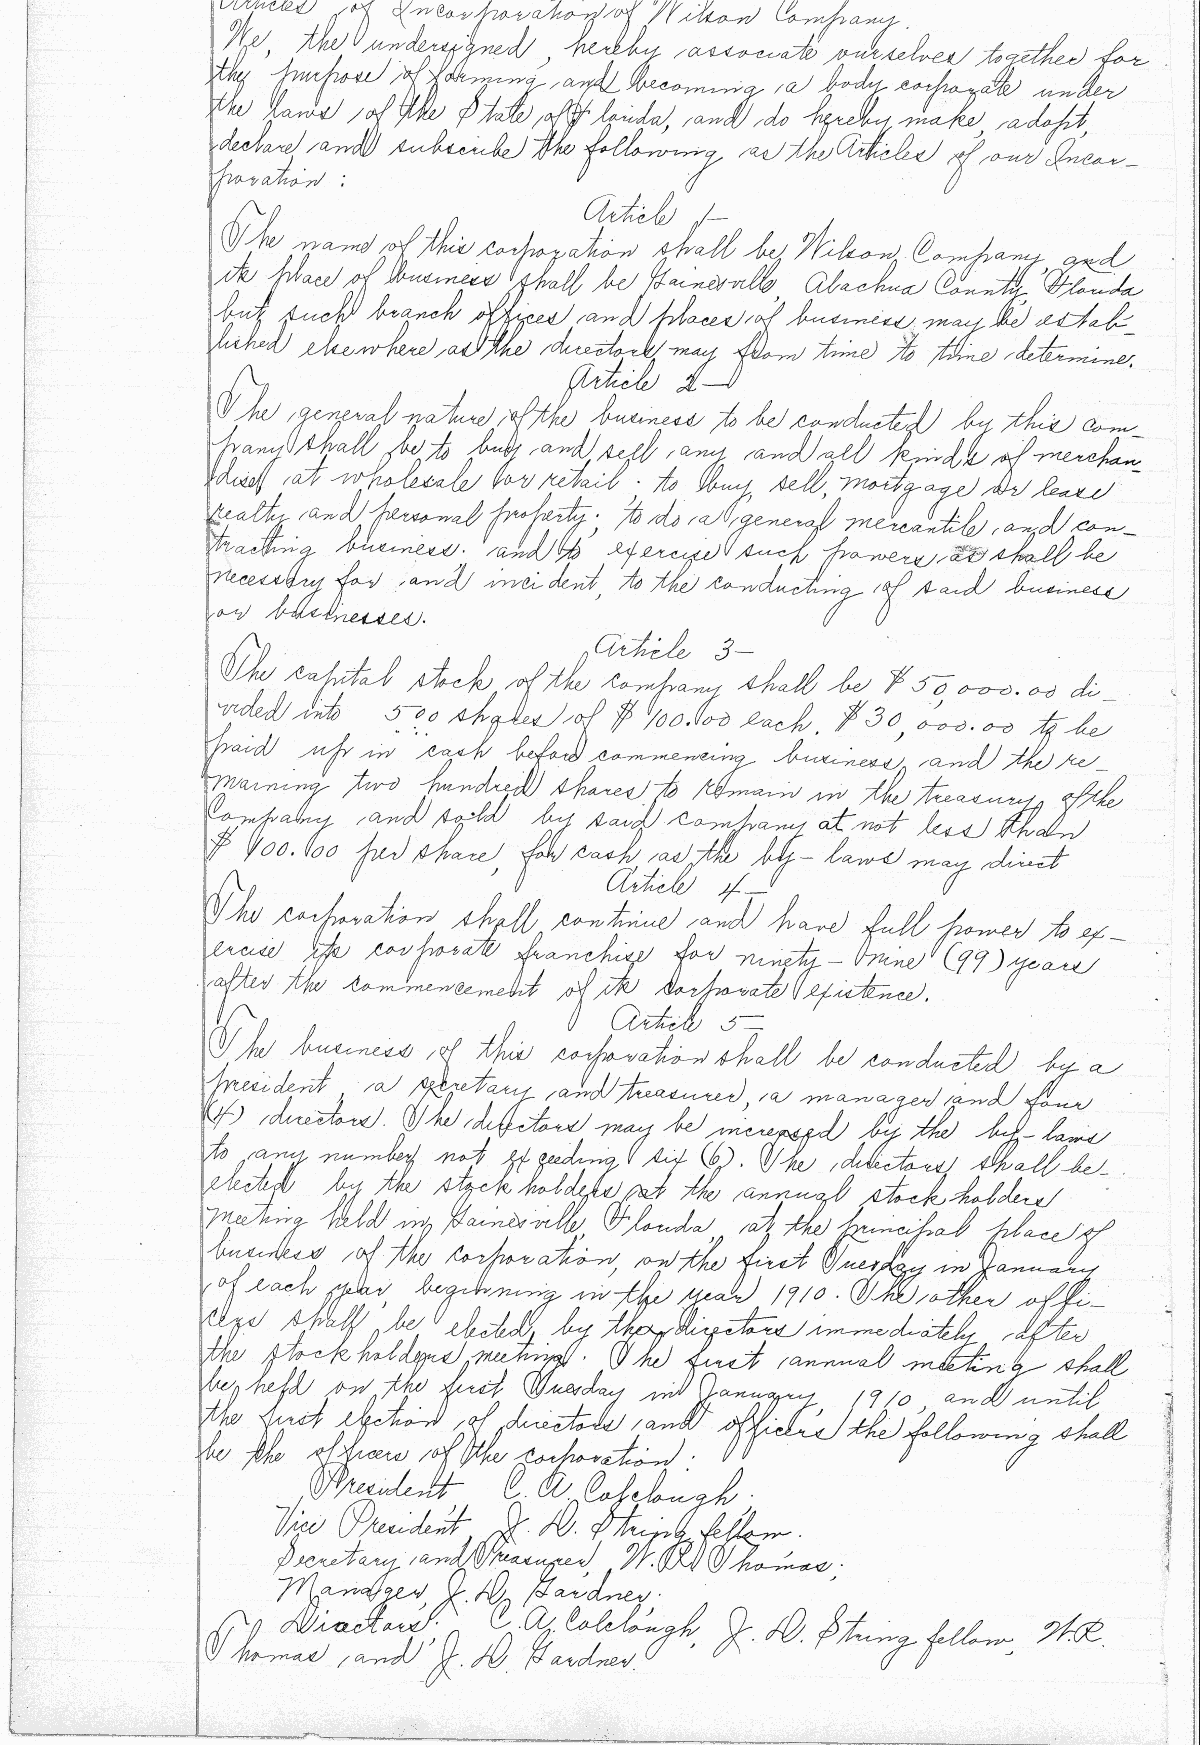 Articles of Incorporation of Wilson Company.
We, the undersigned, hereby associate ourselves together for
the purpose of forming and becoming a body corporate under
the laws of the State of Florida, and do hereby make, adopt,
declare and subscribe the following as the Articles of our Incor-
poration :
Article 1-
The name of this corporation shall be Wilson Company, and
its place of business shall be Gainesville, Alachua County, Florida
but such branch offices and places of business may be estab-
lished elsewhere as the directors may from time to time determine.
Article 2-
The general nature of the business to be conducted by this com-
pany shall be to buy and sell any and all kinds of merchan-
dise, at wholesale or retail; to buy, sell, mortgage or lease
realty and personal property; to do a general mercantile and con-
tracting business; and to exercise such powers as shall be
necessary for and incident, to the conducting of said business
or businesses.
Article 3-
The capital stock of the company shall be $50,000.00 di-
vided into 500 shares of $100.00 each. $30,000.00 to be
paid up in cash before commencing business, and the re-
maining two hundred shares to remain in the treasury of the
Company and sold by said company at not less than
$100.00 per share, for cash, as the by-laws may direct
Article 4-
The corporation shall continue and have full power to ex-
ercise its corporate franchise for ninety-nine (99) years
after the commencement of its corporate existence.
Article 5-
The business of this corporation shall be conducted by a
president, a secretary and treasurer, a manager and four
(4) directors. The directors may be increased by the by-laws
to any number not exceeding six (6). The directors shall be
elected by the stockholders at the annual stockholders
meeting held in Gainesville, Florida, at the principal place of
business of the corporation, on the first Tuesday in January
of each year, beginning in the year 1910. The other offi-
cers shall be elected by the directors immediately after
the stockholders meeting. The first annual meeting shall
be held on the first Tuesday in January, 1910, and until
the first election of directors and officers the following shall
be the officers of the corporation:
President C. A. Colclough;
Vice President, J. D. Stringfellow.
Secretary and Treasurer, W. R. Thomas;
Manager, J. D. Gardner;
Directors: C. A. Colclough, J. D. Stringfellow, W.R.
Thomas, and J. D. Gardner.